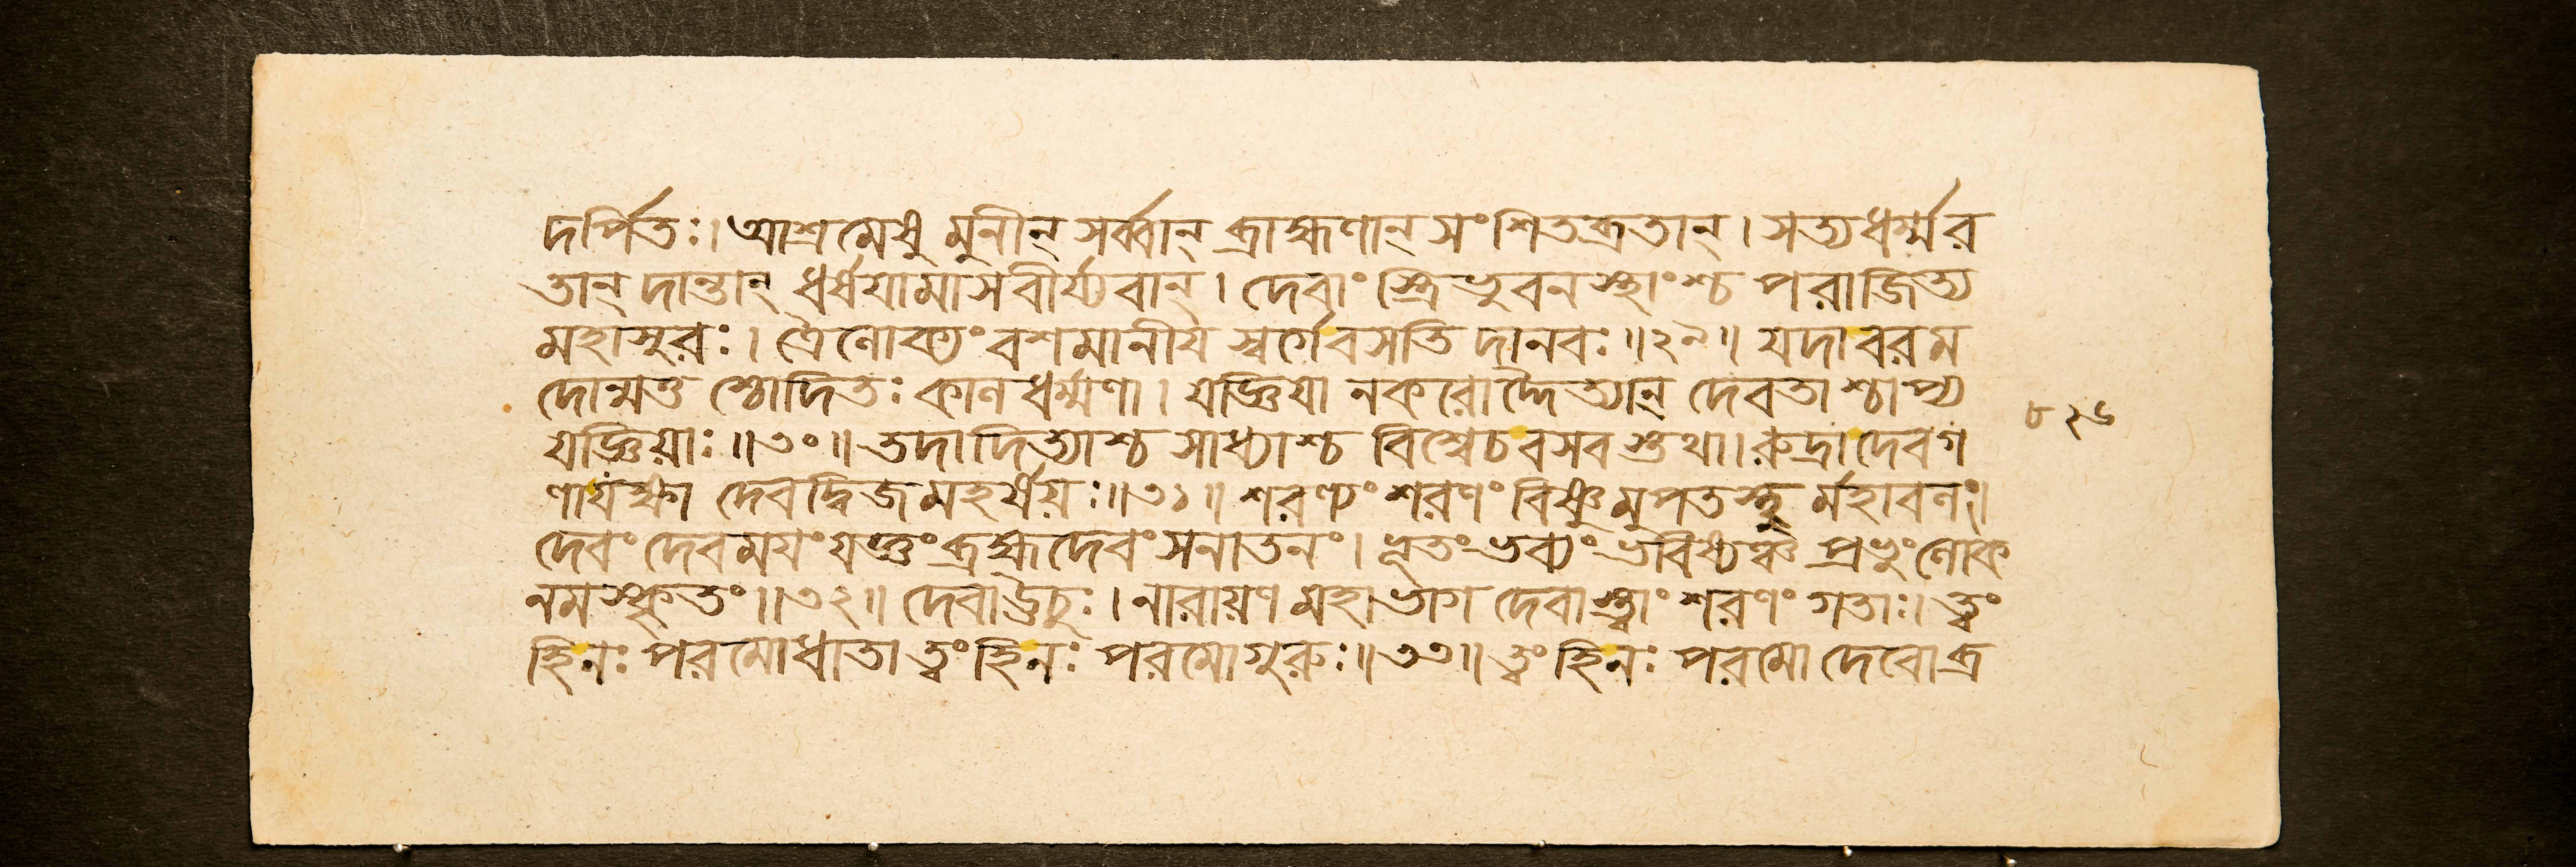 দর্পিতঃ। আশ্রমেষু মুনীন্ সর্ব্বান্ ব্রাহ্মণান্ সংশিতব্রতান্। সত্যধর্ম্মর
তান্ দান্তান্ ধর্ষযামাস বীর্য্যবান্। দেবাংস্ত্রিভুবনস্থাংশ্চ পরাজিত্য
মহাসুরঃ। ত্রৈলোক্যং বশমানীয স্বর্গে বসতি দানবঃ॥২৯॥ যদা বরম
দোন্মত্ত শ্চোদিতঃ কালধর্ম্মণা। যজ্ঞিযা নকরোদ্দৈত্যান্ দেবতাশ্চাপ্য
যজ্ঞিয়াঃ॥৩০॥ তদাদিত্যাশ্চ সাধ্যাশ্চ বিশ্বেচ বসবস্তথা। রুদ্রা দেবগ
ণা যক্ষা দেবদ্বিজমহর্ষয়ঃ॥৩১॥ শরণ্যং শরণং বিষ্ণুমুপতস্থু র্মহাবলং।
দেবং দেবময়ং যজ্ঞং ব্রহ্মদেবং সনাতনং। ভূতং ভব্যং ভবিষ্যঞ্চ প্রভুং লোক
নমস্কৃতং॥৩২॥ দেবা ঊচুঃ। নারায়ণ মহাভাগ দেবাস্ত্বাং শরণং গতাঃ। ত্বং
হি নঃ পরমো ধাতা ত্বং হি নঃ পরমো গুরুঃ॥৩৩॥ ত্বং হি নঃ পরমো দেবো ব্র
৮২৬